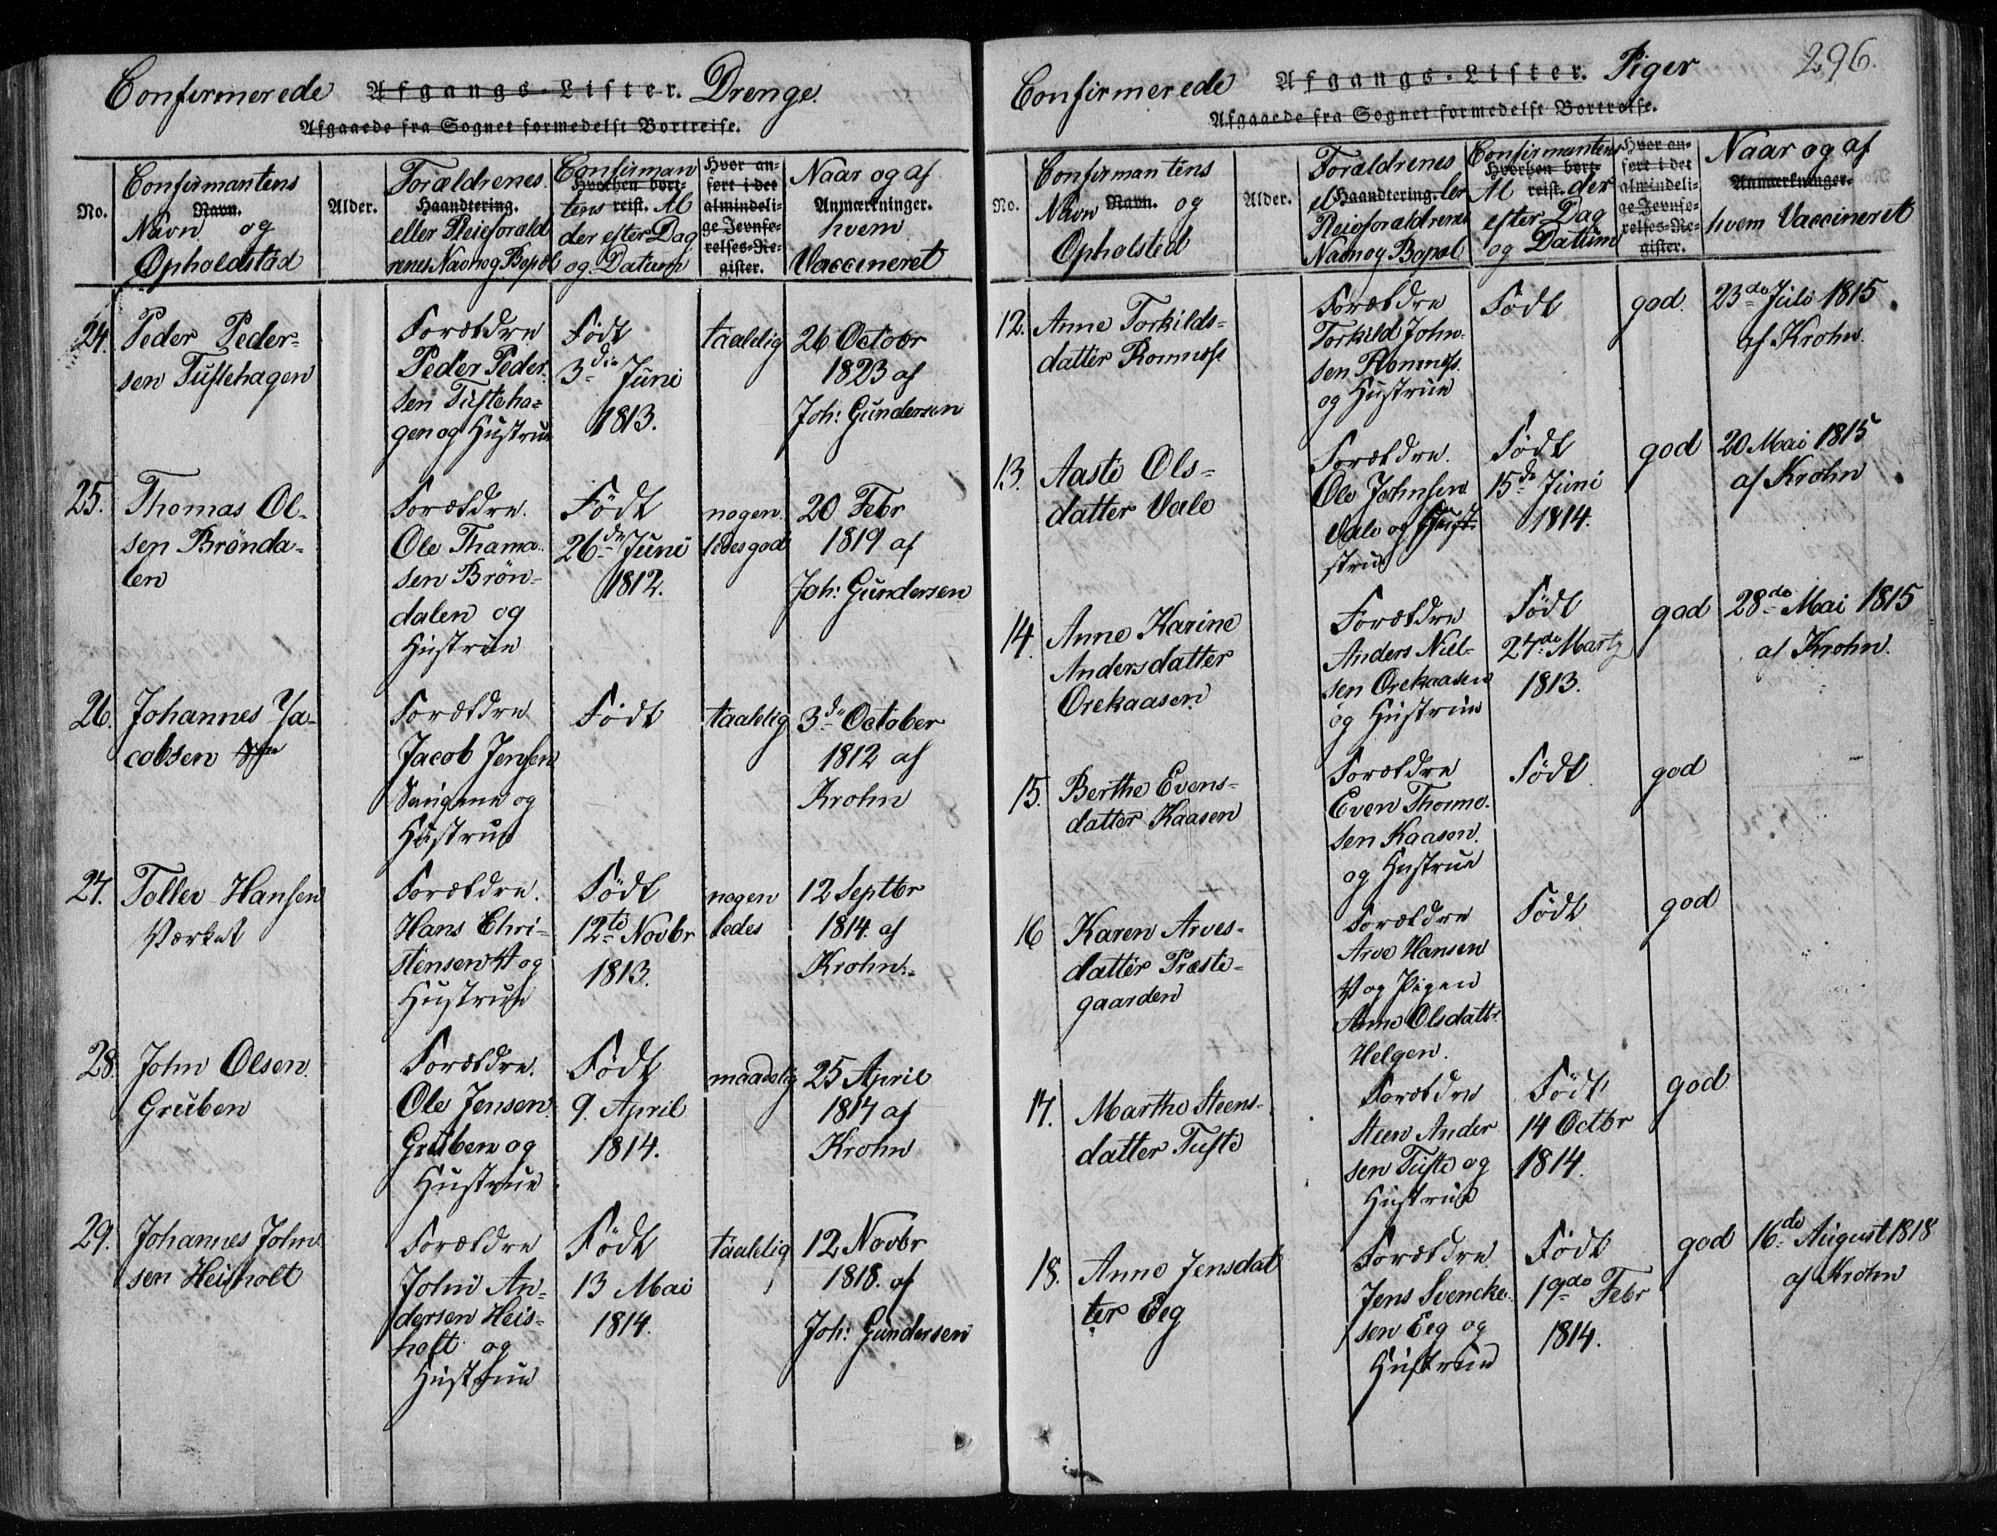 Confirmerede Afgangs-Lister. Drenge.
Afgaaede fra Sognet formedelst Bortreise.
No.
Confirmantens
Navn.
Navn og
Opholdstæd
Alder.
Forældrenes
Haandtering.
eller Pleieforæld
renes Navn og Bopæl
Confirman
Hvorhen bort-
tens reist. Al
der efter Dag
og Datum
Hvor an-
ført i det
almindeli-
ge Jevnfø-
relses-Re-
gister.
Naar og af
Anmærkninger.
hvem
Vaccineret
24.
Peder Peder-
sen Tuftehagen
Forældre
Peder Peder
sen Tufteha-
gen og Hustrue
Født
3die Juni
1813.
taalelig
26 Octobr
1823 af
Joh: Gundersen
25.
Thomas Ol-
sen Brønda-
len
Forældre.
Ole Thama
sen Brøn-
dalen og
Hustrue
Født
26de Juni
1812.
nogen
ledes god
20 Febr
1819 af
Joh: Gundersen
26.
Johannes Ja-
cobsen
Forældre
Jacob Jensen
og
Hustrue
Født
taalelig
3de October
1812 af
Krohn
27.
Toller Hansen
Værket
Forældre.
Hans Chri-
stensen V og
Hustrue
Født
12te Novbr
1813.
nogen
ledes
12 Septbr
1814. af
Krohn
28.
John Olsen
Gruben
Forældre.
Ole Jensen
Gruben og
Hustrue
Født
9. April
1814.
maadelig
25 April
1817 af
Krohn
29.
Johannes John
sen Heisholt
Forældre
John An-
dersen Heis-
holt og
Hustrue
Født
13 Mai
1814.
taalelig
12 Novbr
1818. af
Joh: Gundersen
296.
Confirmerede Afgangs-Lister. Piger
Afgaaede fra Sognet formedelst Bortreise.
No.
Confirmantens
Navn Navn. og
Opholsted
Alder.
Forældrenes
el Haandtering. ler
Pleieforældrenes
Navn og Bopæl
Confirmantens
Hvorhen bort-
Al reist. der
efter Dag
og Datum
Hvor an-
ført i det
almindeli-
ge Jevnfø-
relses-Re-
gister.
Naar og af
Anmærkninger.
hvem Vaccineret
12.
Anne Torkilds-
datter Romnæss
Forældre
Torkild John-
sen Romnæss
og Hustrue
Født
god.
23de Juli 1815
af Krohn.
13.
Aaste Ols-
datter Vale
Forældre.
Ole Johnsen
Vale og Hust
strue
Født
15de Juni
1814.
god
20 Mai 1815
af Krohn
14.
Anne Karine
Andersdatter
Orekaasen
Forældre
Anders Niel-
sen Orekaasen
og Hustrue
Født
27de Marts
1813.
god
28de Mai 1815
af Krohn.
15.
Berthe Evens-
datter Kaasen
Forældre
Even Thorme-
sen Kaasen
og Hustrue
Født
god
16
Karen Arves-
datter Præste-
gaarden
Forældre
Arve Hansen
V og Pigen
Anne Olsdattr
Helgen.
Født
god
17.
Marthe Steens-
datter Tufte
Forældre
Steen Ander
sen Tufte og
Hustrue
Født
14 Octbr
1814.
god
18.
Anne Jensdat
ter Eeg
Forældre
Jens Svencke-
sen Eeg og
Hustrue
Født
19de Febr
1814.
god
16de August 1818
af Krohn